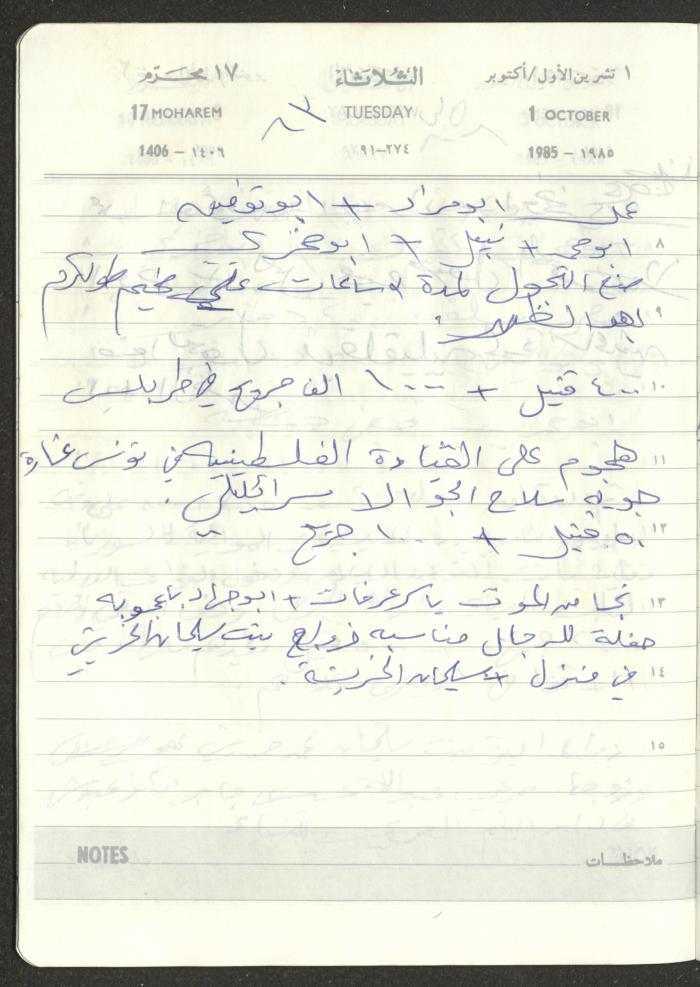 ١ تشرين الأول/أكتوبر الثلاثاء ١٧ محرم
1 OCTOBER TUESDAY 17 MOHAREM
1985 - ١٩٨٥ ٩١-٢٧٤ 1406 - ١٤٠٦
عمل ابو مراد + ابو توفيق
٨ ابو يحيى + نبيل + ابو
منع التجول لمدة ساعات مخيم طولكرم
٩ بعد الظهر.
١٠ ٤٠٠ قتيل + ١٠٠٠ الف جريح في طرابلس
١١ هجوم على القيادة الفلسطينية في تونس غارة
جويه سلاح الجو الاسرائيلي.
١٢ ٥٠ قتيل + ١٠٠ جريح
١٣ نجا من الموت ياسر عرفات + ابو جهاد باعجوبه
حفلة للرجال مناسبه زواج بنت سليمان
١٤ في منزل + سليمان
١٥
NOTES ملاحظات